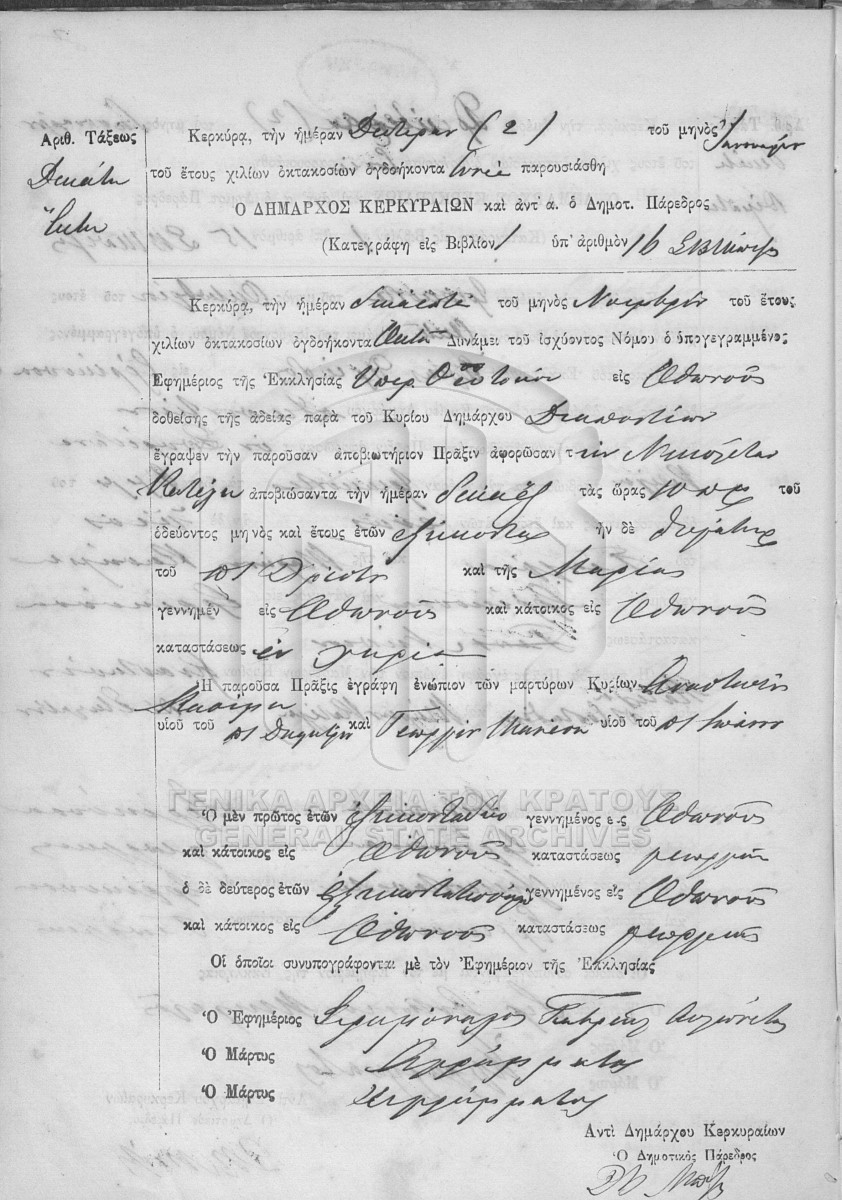 Ἀριθ. Τάξεως
Δεκάτη
Ἕκτη
Κερκύρα, τὴν ἡμέραν Δευτέραν (2) τοῦ μηνὸς Ἰανουαρίου
τοῦ ἔτους χιλίων ὀκτακοσίων ὀγδοήκοντα ἐννέα παρουσιάσθη
Ὁ ΔΗΜΑΡΧΟΣ ΚΕΡΚΥΡΑΙΩΝ καὶ ἀντ' α. ὁ Δημοτ. Πάρεδρος
(Κατεγράφη εἰς Βιβλίον 1 ὑπ' ἀριθμὸν 16
Κερκύρα, τὴν ἡμέραν τοῦ μηνὸς Νοεμβρίου τοῦ ἔτους
χιλίων ὀκτακοσίων ὀγδοήκοντα Ὀκτὼ Δυνάμει τοῦ ἰσχύοντος Νόμου ὁ ὑπογεγραμμένος
Ἐφημέριος τῆς Ἐκκλησίας Ὑπερ Θεοτόκου εἰς Ὀθωνοὺς
δοθείσης τῆς ἀδείας παρὰ τοῦ Κυρίου Δημάρχου Διαποντίων
ἔγραψεν τὴν παροῦσαν ἀποβιωτήριον Πρᾶξιν ἀφορῶσαν τὴν Νικολέταν
Κατέχη ἀποβιώσαντα τὴν ἡμέραν δεκαέξ τὰς ὥρας 10 τοῦ
ὁδεύοντος μηνὸς καὶ ἔτους ἐτῶν ἑξήκοντα ἦν δὲ θυγάτηρ
τοῦ καὶ τῆς Μαρίας
γεννημέν εἰς Ὀθωνοὺς καὶ κάτοικος εἰς Ὀθωνοὺς
καταστάσεως ἐν χηρίᾳ
Ἡ παροῦσα Πρᾶξις ἐγράφη ἐνώπιον τῶν μαρτύρων Κυρίων Ἀναστασίου
Κασίμη
υἱοῦ τοῦ καὶ Γεωργίου υἱοῦ τοῦ
ΓΕΝΙΚΑ ΑΡΧΕΙΑ ΤΟΥ ΚΡΑΤΟΥΣ
GENERAL STATE ARCHIVES
Ὁ μὲν πρῶτος ἐτῶν ἑξήκοντα δύο γεννημένος εἰς Ὀθωνοὺς
καὶ κάτοικος εἰς Ὀθωνοὺς καταστάσεως γεωργὸς
ὁ δὲ δεύτερος ἐτῶν γεννημένος εἰς Ὀθωνοὺς
καὶ κάτοικος εἰς Ὀθωνοὺς καταστάσεως γεωργὸς
Οἱ ὁποῖοι συνυπογράφονται μὲ τὸν Ἐφημέριον τῆς Ἐκκλησίας
Ὁ Ἐφημέριος Ἱερομόναχος
Ὁ Μάρτυς Ἀγράμματος
Ὁ Μάρτυς Ἀγράμματος
Ἀντὶ Δημάρχου Κερκυραίων
Ὁ Δημοτικὸς Πάρεδρος